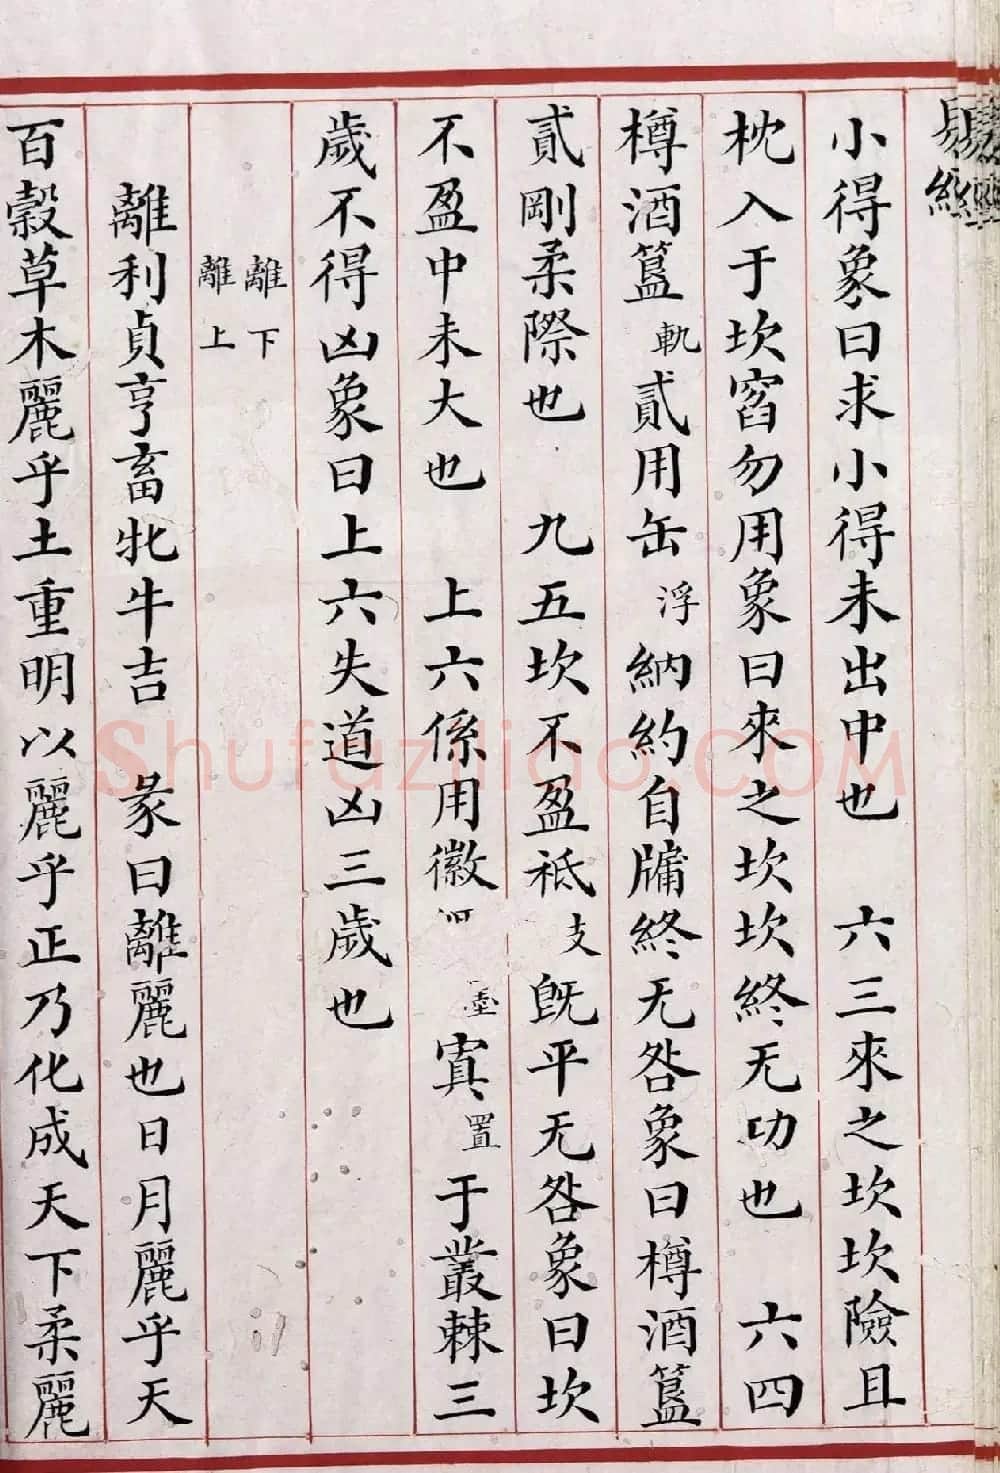 易經
小得象曰求小得未出中也 六三來之坎坎險且
枕入于坎窞勿用象曰來之坎坎終无功也 六四
樽酒簋軌貳用缶浮納約自牖終无咎象曰樽酒簋
貳剛柔際也 九五坎不盈祗支既平无咎象曰坎
不盈中未大也 上六係用徽墨寘置于叢棘三
歲不得凶象曰上六失道凶三歲也
離下
離上
離利貞亨畜牝牛吉 彖曰離麗也日月麗乎天
百穀草木麗乎土重明以麗乎正乃化成天下柔麗
Shufaziliao.COM